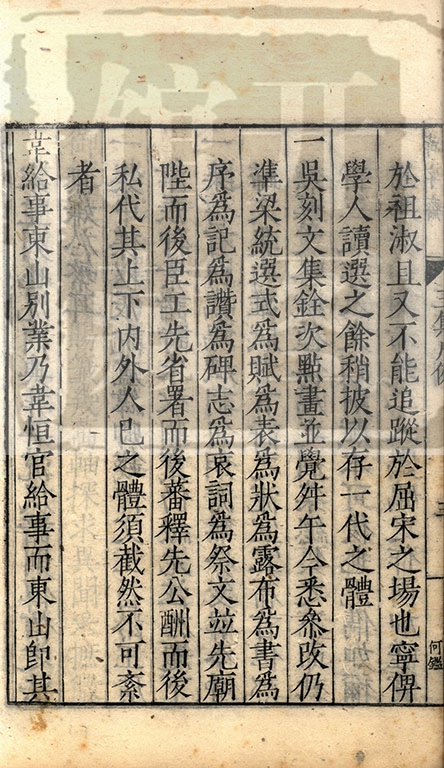 於祖淑且又不能追蹤於屈宋之場也寧俾
學人讀選之餘稍披以存一代之體
一吳刻文集銓次㸃畫並覺舛午今悉叅攷仍
準梁統選式爲賦爲表爲狀爲露布爲書爲
序爲記爲讚爲碑志爲哀詞爲祭文竝先廟
陛而後臣工先省署而後蕃釋先公酬而後
私代其上下内外人已之體須截然不可紊
者
韋給事東山别業乃韋恒官給事而東山卽其
何鑑